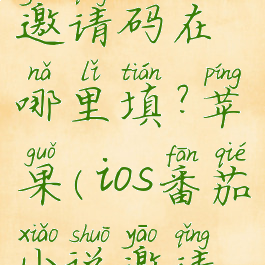 邀请码在
nǎ lǐ tián píng
哪里填？苹
guǒ fān qié
果（ios番茄
xiǎo shuō yāo qǐng
小说邀请